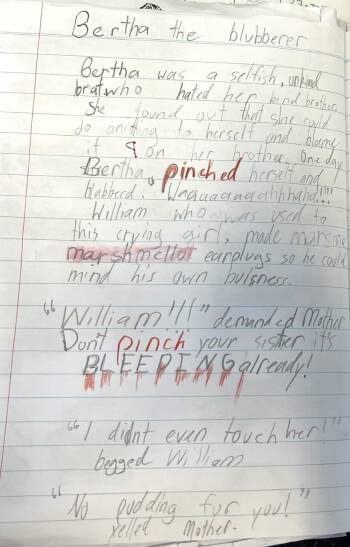 Bertha the blubberer
Bertha was a selfish, unkind
brat who hated her kind brother.
She found out that she could
do anithing to herself and blame
it on her brother. One day
Bertha pinched herself and
blabberd. Waaaaaaaahhhaha!!!
William who was used to
this crying girl, made
marshmellot earplugs so he could
mind his own buisness.
"William!!!" demanded Mother
Dont pinch your sister it's
BLEEDING already!
"I didnt even touch her!"
begged William
"No pudding for you!"
yelled Mother.